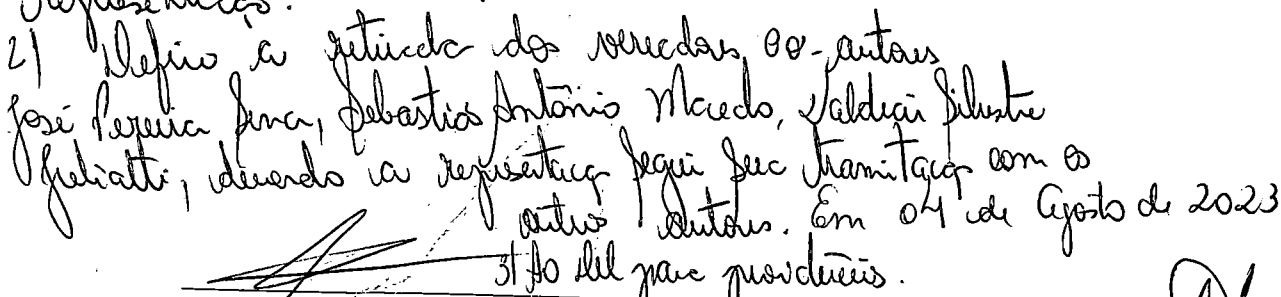 Representação.
2) Defiro a retirada dos vereadores co-autores
José Pereira Sena, Sebastião Antônio Macedo, Valdecir Silvestre
Juliatti, devendo a representação seguir sua tramitação com os
outros autores. Em 04 de Agosto de 2023
3) Ao para providências.